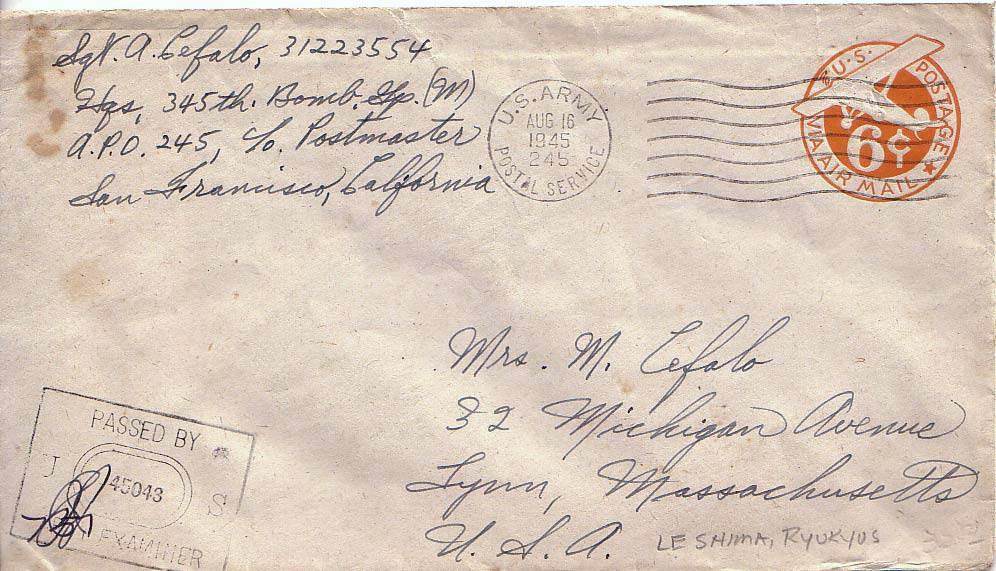 Sgt. A. Cefalo, 31223554
Hqs, 345th. Bomb. Gp. (M)
A.P.O. 245, c/o. Postmaster
San Francisco, California
U.S. ARMY
AUG 16
1945
245
POSTAL SERVICE
U.S. POSTAGE
6¢
VIA AIR MAIL
Mrs. M. Cefalo
32 Michigan Avenue
Lynn, Massachusetts
U. S. A.
LE SHIMA, RYUKYUS
PASSED BY
45043
S
EXAMINER